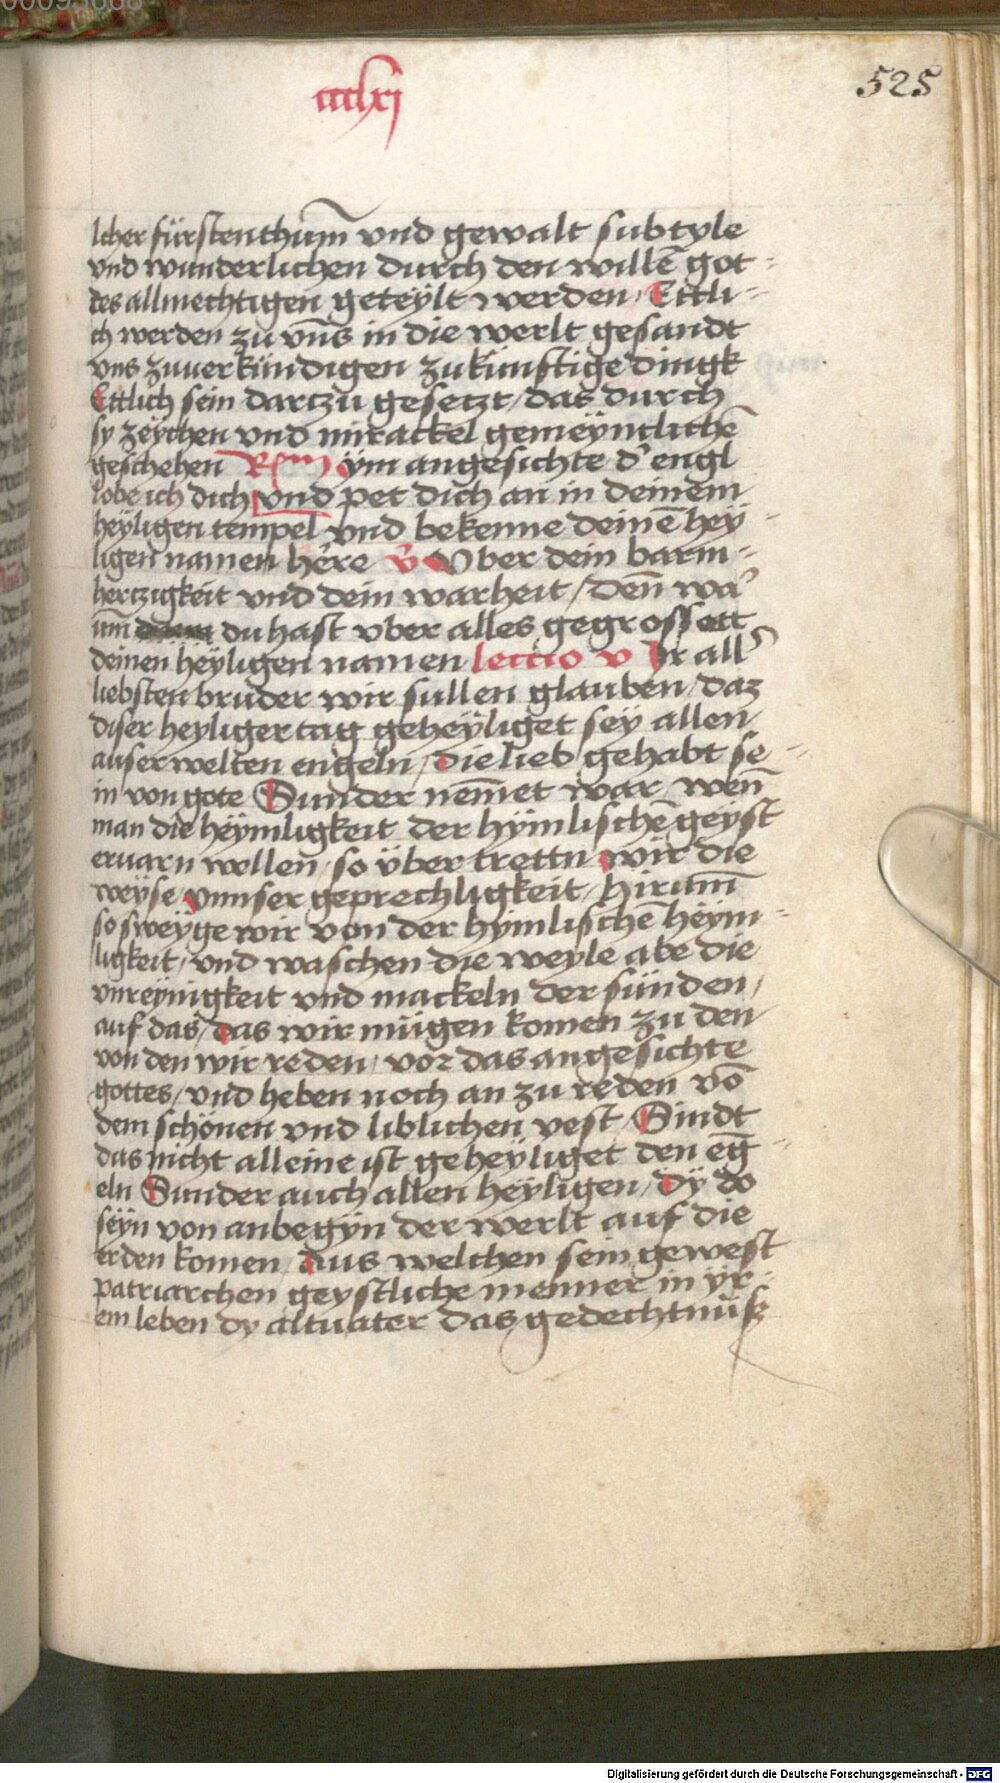 00093668
525
ccclxi
lcher fürstenthum̄ vnd gewalt subtyle
vnd wunderlichen durch den willē got-
des allmechtigen geteÿlt werden / Ettli-
ch werden zu vnns in die werlt gesandt
vns zuuerkündigen zukünftige dingk
Ettlich sein dartzu gesetzt / das durch
sy zeÿchen vnd mirackel gemeÿntlichē
geschehen Rm̄ ÿm angesichte d' engl
lobe ich dich vnd pet dich an in deinem
heÿligen tempel vnd bekenne deinē heÿ-
ligen namen here v̄ Vber dein barm-
hertzigkeit vnd dein warheit / denn̄ wa'
um̄ du hast vber alles gegrossett
deinen heÿligen namen lectio v Ir all'
liebsten bruder wir sullen glauben / daz
diser heyliger tag geheÿliget seÿ allen
auserwelten engeln / die lieb gehabt se-
in von gote Sunder nem̄et war / wen̄
man die heÿmligkeit der hÿmlischē geÿst
eruarn wellen̄ / so über trettn wir die
weÿse vnnser geprechligkeit / hirum̄
so sweÿge wir von der hÿmlischē heÿm-
ligkeit / vnd waschen die weyle abe die
vnreynigkeit vnd mackeln der sünden /
auf das / das wir mügen komen zu den
von den wir reden / vor das angesichte
gottes / vnd heben noch an zu reden vō
dem schönen vnd liblichen vest / Sindt
das nicht alleine ist geheÿliget den eḡ-
eln Sunder auch allen heÿligen / dÿ do
seÿn von anbegÿn der werlt auf die
erden komen / Aus welchen sein gewest
patriarchen geystliche menner in ÿr-
em leben dy altuater das gedechtnuß
Digitalisierung gefördert durch die Deutsche Forschungsgemeinschaft - DFG